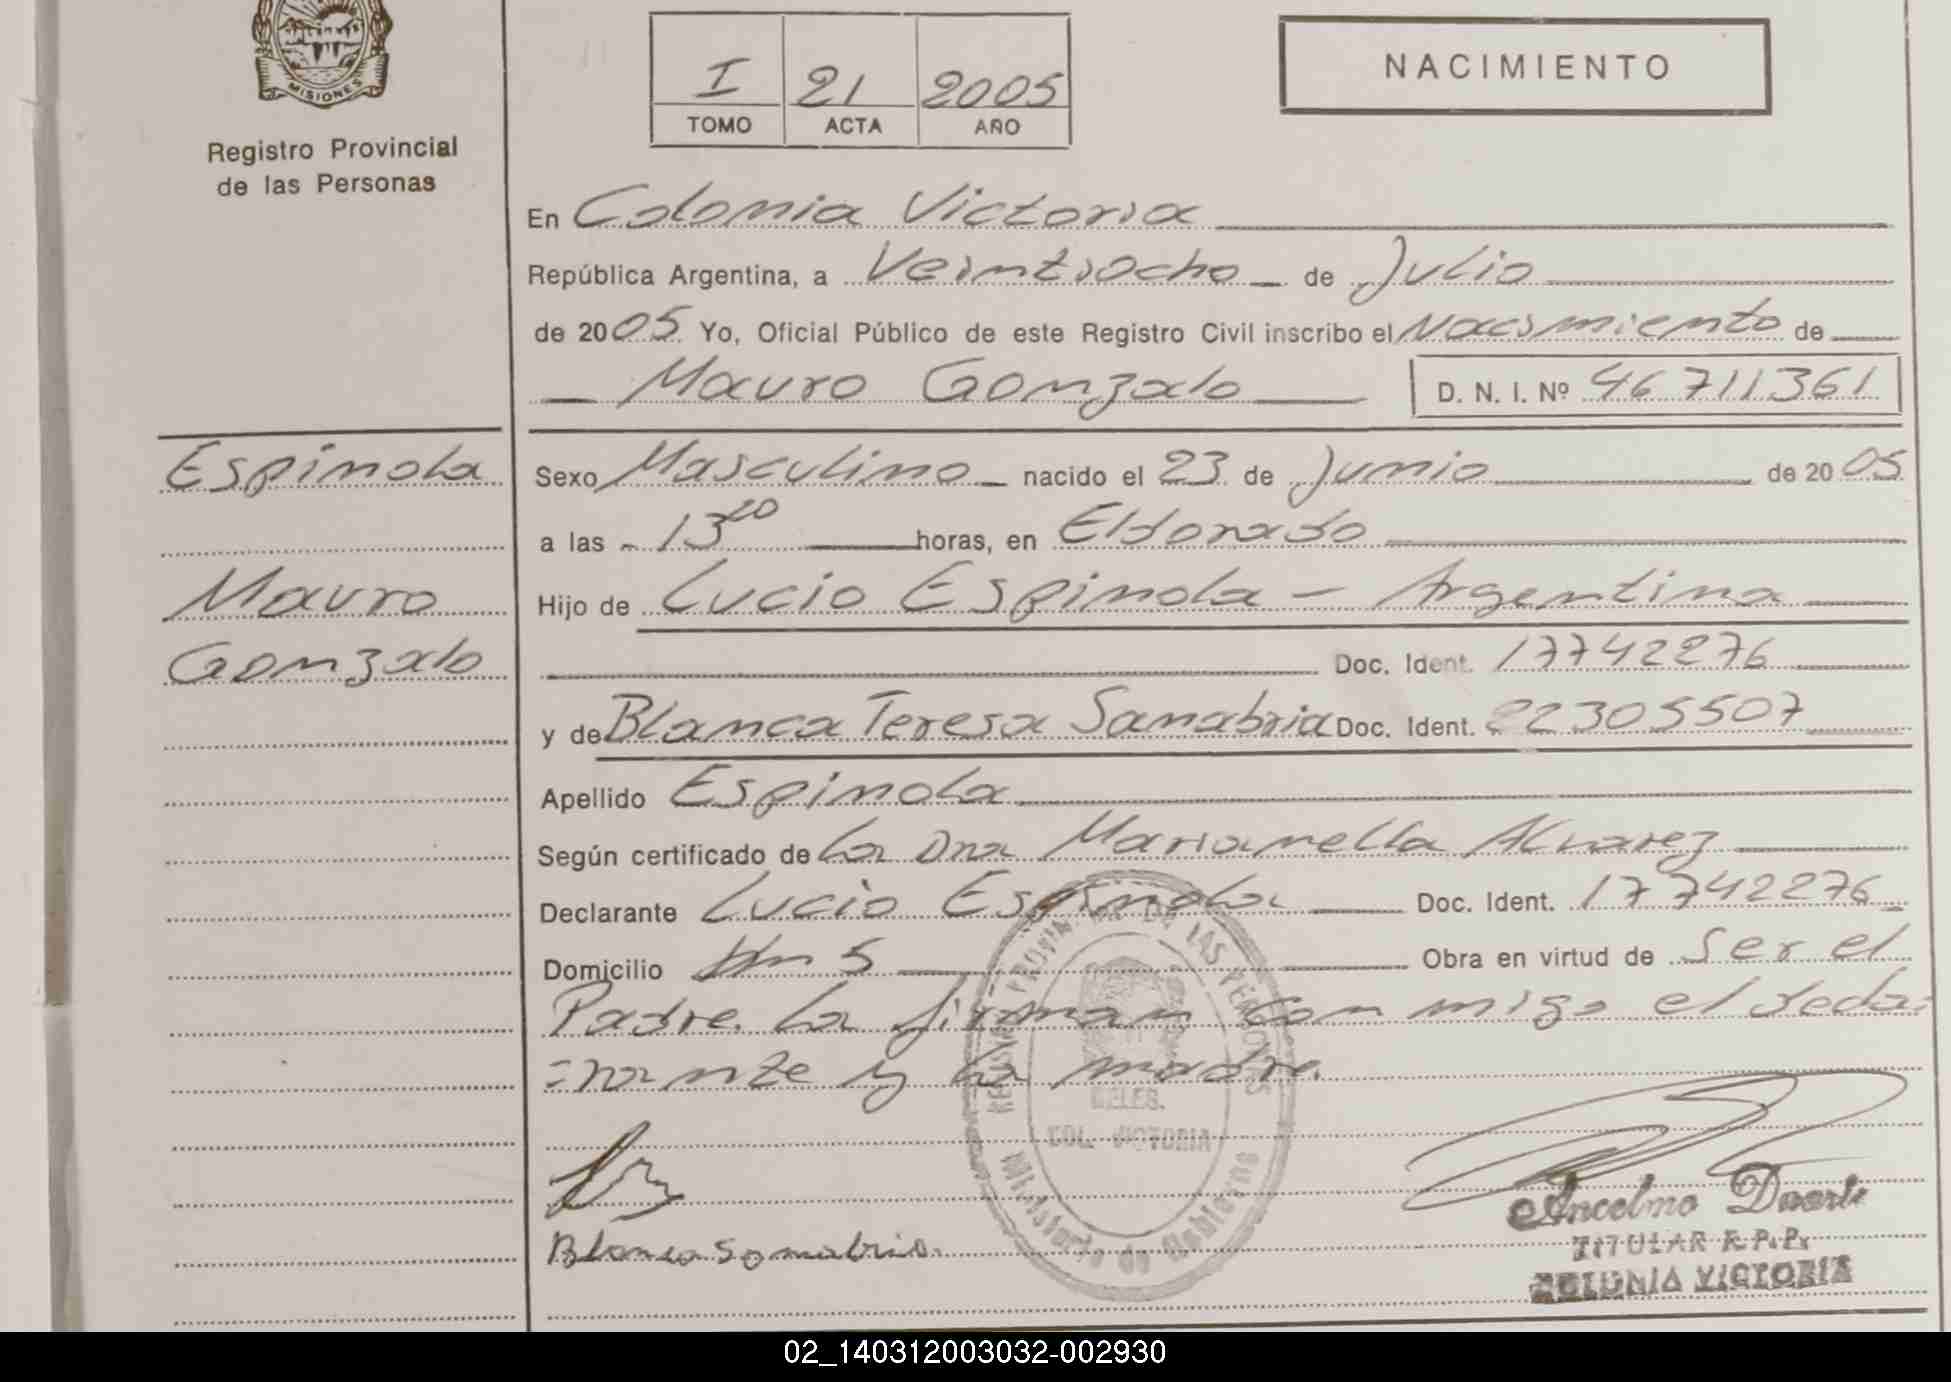 MISIONES
Registro Provincial
de las Personas
I 21 2005
TOMO ACTA AÑO
NACIMIENTO
En Colonia Victoria
República Argentina, a Veintiocho de Julio
de 2005 Yo, Oficial Público de este Registro Civil inscribo el Nacimiento de
Mauro Gonzalo D. N. I. Nº 46 711361
Espinola
Mauro
Gonzalo
Sexo Masculino nacido el 23 de Junio de 2005
a las 13 horas, en Eldorado
Hijo de Lucio Espinola - Argentina
Doc. Ident. 17742276
y de Blanca Teresa Sanabria Doc. Ident. 22305507
Apellido Espinola
Según certificado de La Dra Marianella Alvarez
Declarante Lucio Espinola Doc. Ident. 17742276
Domicilio Km 5 Obra en virtud de Ser el
Padre. La firman con migo el decla=
=rante y la madre.
Blanca Sanabria.
REGISTRO PROVINCIAL DE LAS PERSONAS
DELEG.
COL. VICTORIA
Ministerio de Gobierno
Ancelmo Duarte
TITULAR R.P.P.
COLONIA VICTORIA
02_140312003032-002930